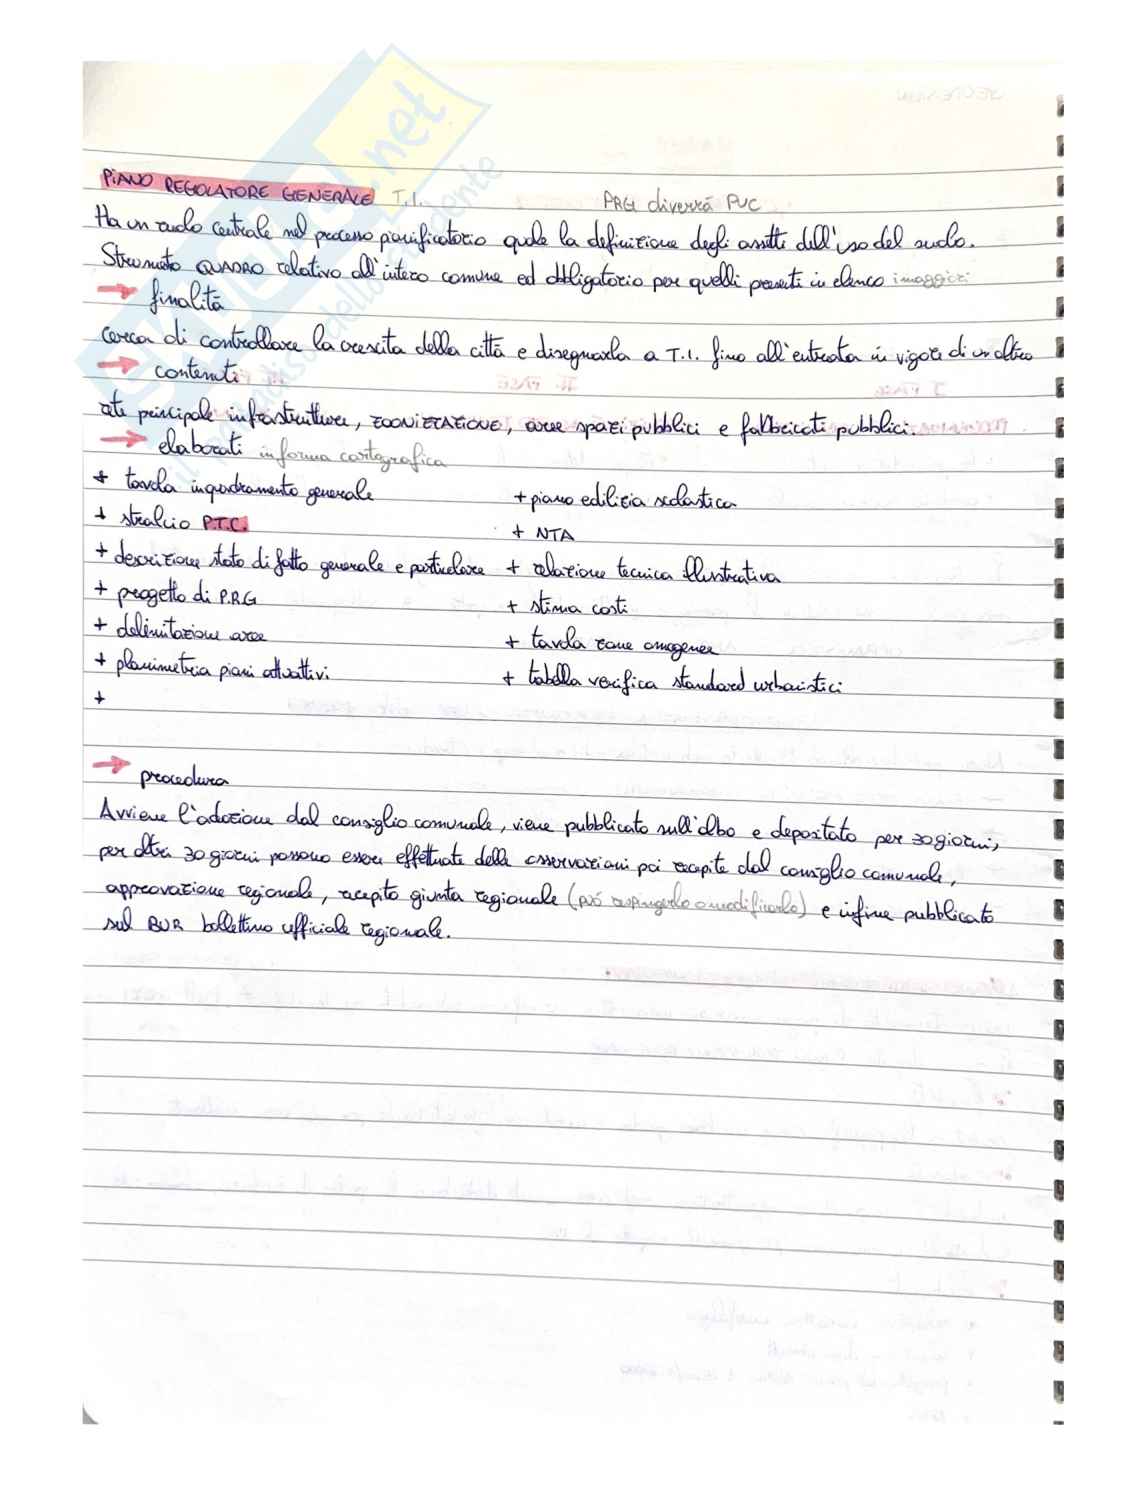 PIANO REGOLATORE GENERALE T.I. PRG diverrá PUC
Ha un ruolo centrale nel processo pianificatorio quale la definizione degli assetti dell'uso del suolo.
Strumento QUADRO relativo all'intero comune ed obbligatorio per quelli presenti in elenco i maggiori
→ finalitá
cerca di controllare la crescita della cittá e disegnarla a T.I. fino all'entrata in vigore di un altro
→ contenuti
rete principale infrastrutture, ZOONIZZAZIONE, aree spazi pubblici e fabbricati pubblici.
→ elaborati in forma cartografica
+ tavola inquadramento generale
+ stralcio P.T.C.
+ descrizione stato di fatto generale e particolare
+ progetto di P.R.G
+ delimitazione aree
+ planimetria piani attuattivi
+
+ piano edilizia scolastica
+ NTA
+ relazione tecnica illustrativa
+ stima costi
+ tavola zone omogenee
+ tabella verifica standard urbanistici
→ procedura
Avviene l'adozione dal consiglio comunale, viene pubblicato sull'albo e depositato per 30 giorni,
per altri 30 giorni possono essere effettuate delle osservazioni poi recepite dal consiglio comunale,
approvazione regionale, recepito giunta regionale (puó respingerlo o modificarlo) e infine pubblicato
sul BUR bollettino ufficiale regionale.